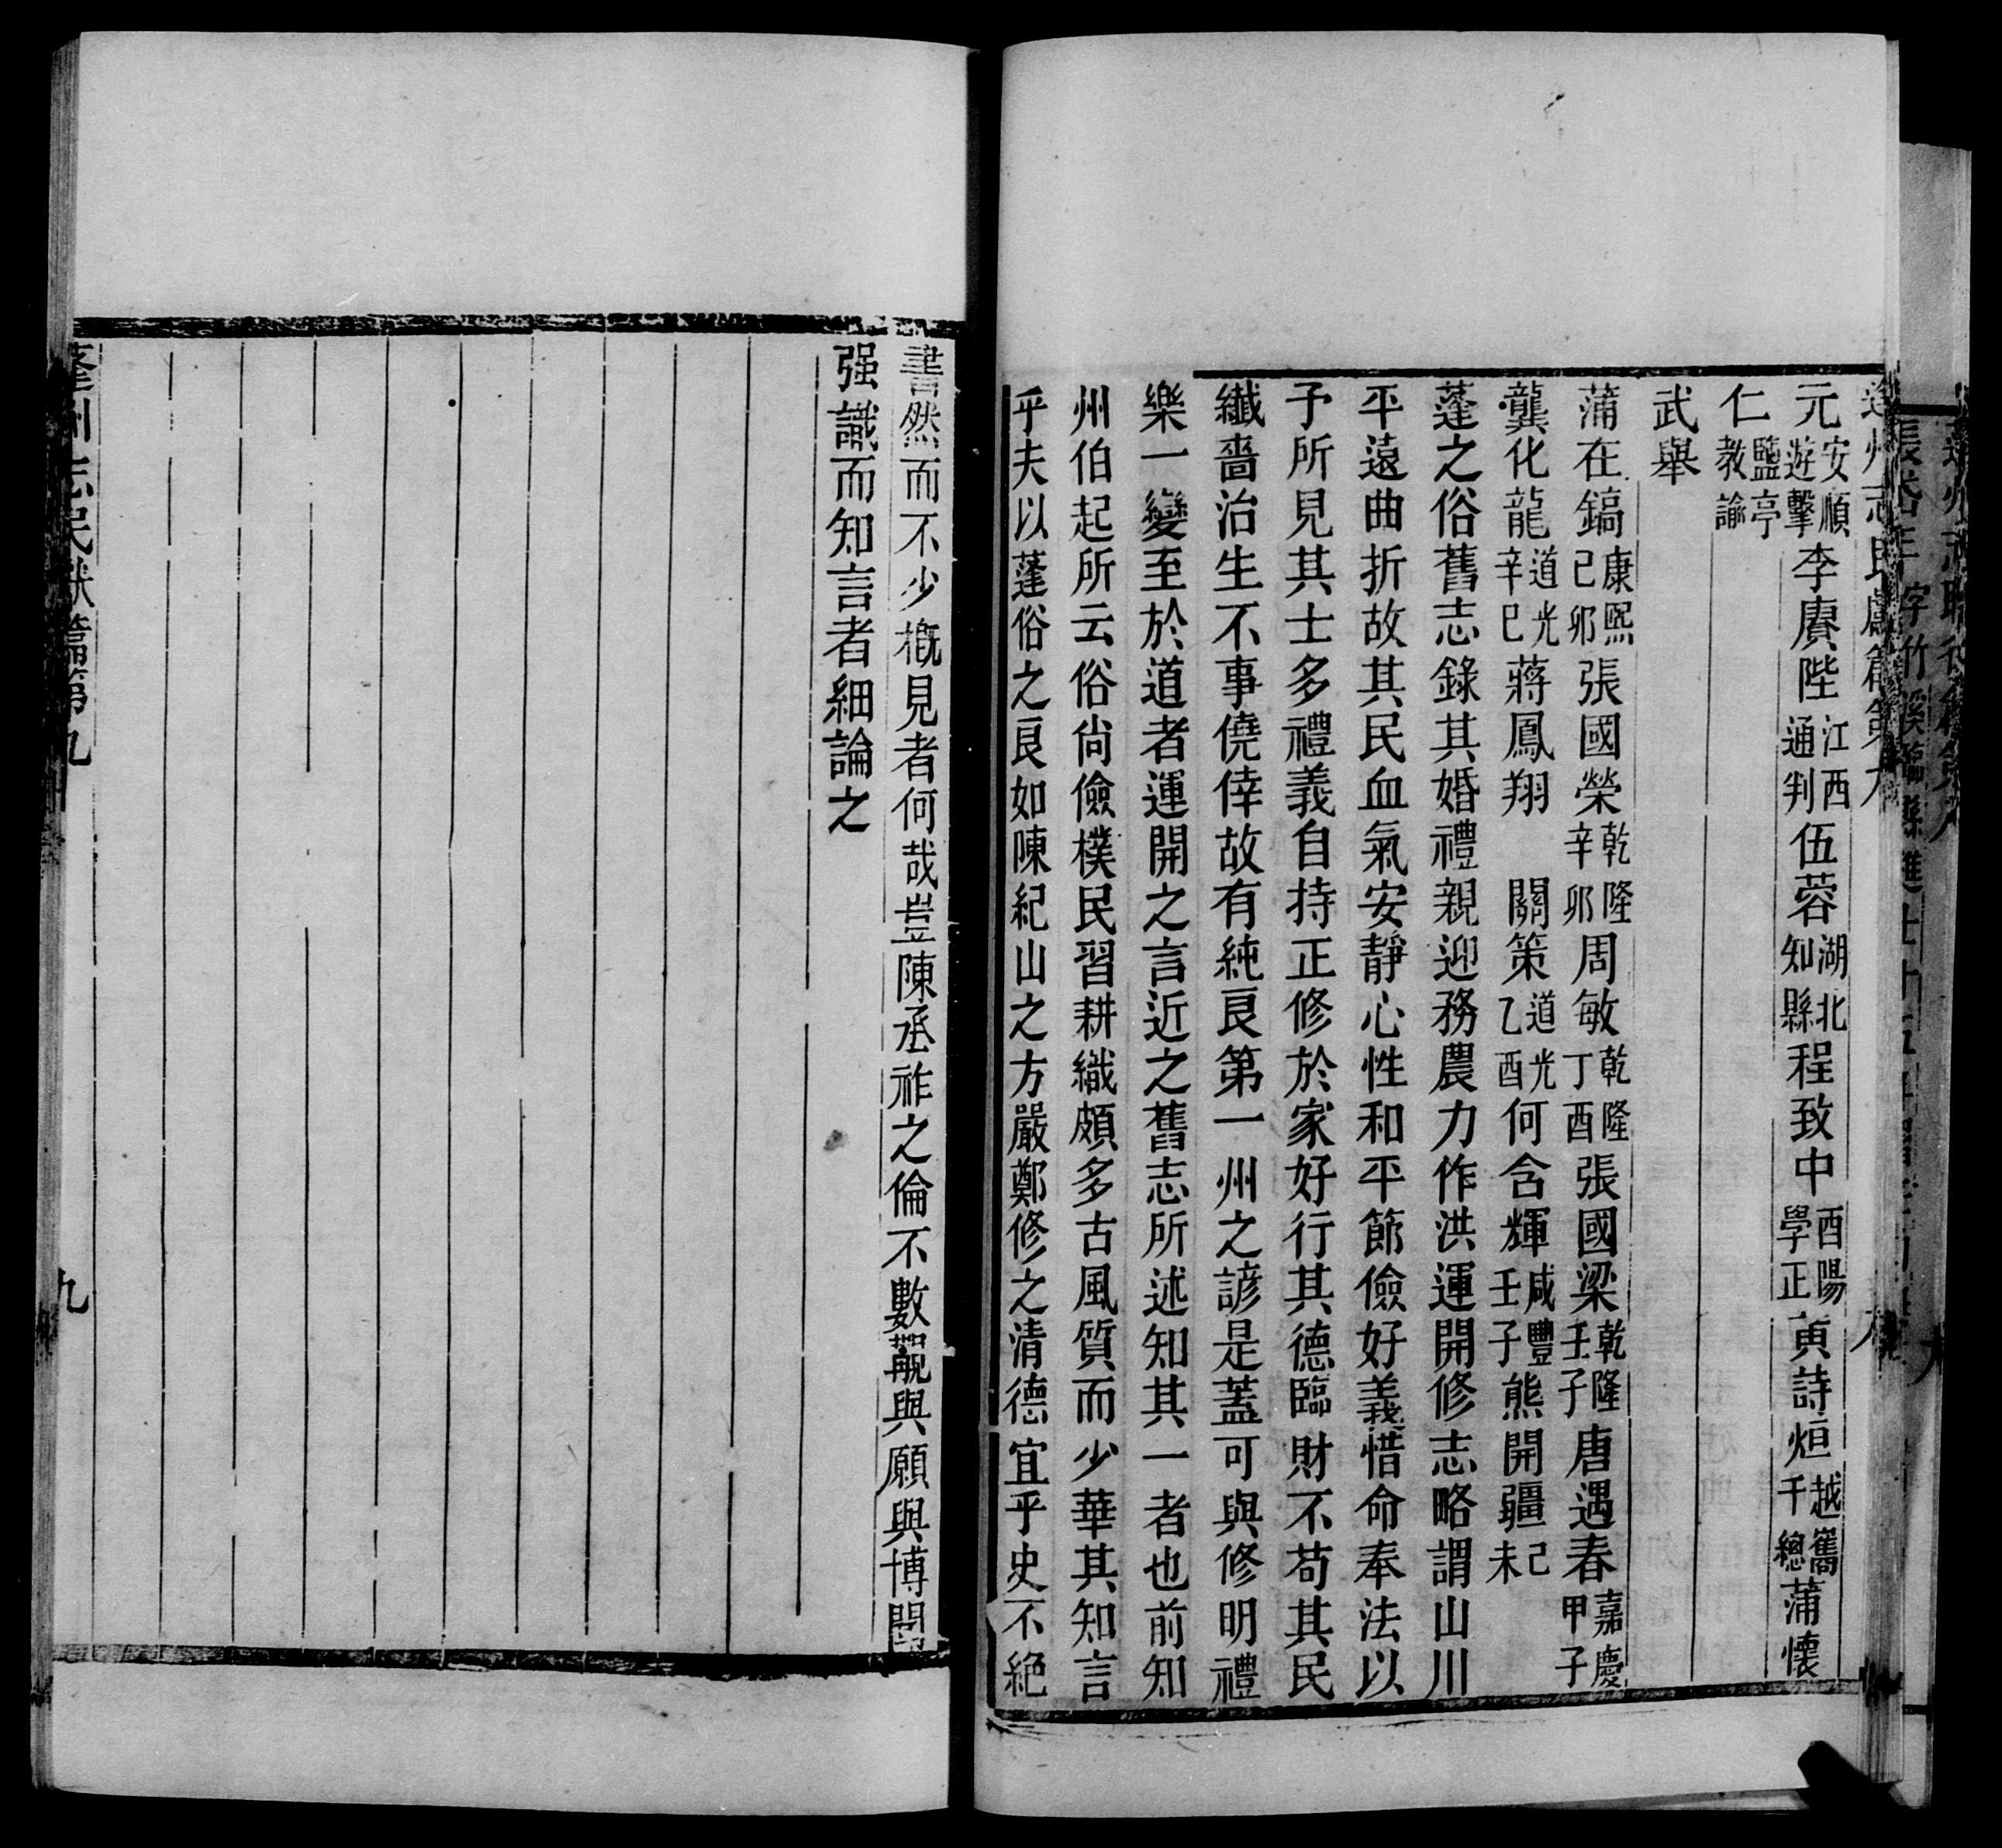 元安順遊擊李賡陛江西通判伍蓉湖北知縣程致中酉陽學正寅詩烜越嶲千總蒲懷
仁鹽亭教諭
武舉
蒲在鎬康熙己卯張國榮乾隆辛卯周敏乾隆丁酉張國梁乾隆壬子唐遇春嘉慶甲子
龔化龍道光辛巳蔣鳳翔 關策道光乙酉何含輝咸豐壬子熊開疆己未
蓬之俗舊志錄其婚禮親迎務農力作洪運開修志略謂山川
平遠曲折故其民血氣安靜心性和平節儉好義惜命奉法以
予所見其士多禮義自持正修於家好行其德臨財不苟其民
纖嗇治生不事僥倖故有純良第一州之諺是蓋可與修明禮
樂一變至於道者運開之言近之舊志所述知其一者也前知
州伯起所云俗尚儉樸民習耕織頗多古風質而少華其知言
乎夫以蓬俗之良如陳紀山之方嚴鄭修之清德宜乎史不絕
書然而不少概見者何哉豈陳丞祚之倫不數覯與願與博聞
强識而知言者細論之
蓬州志民獻篇第九
九